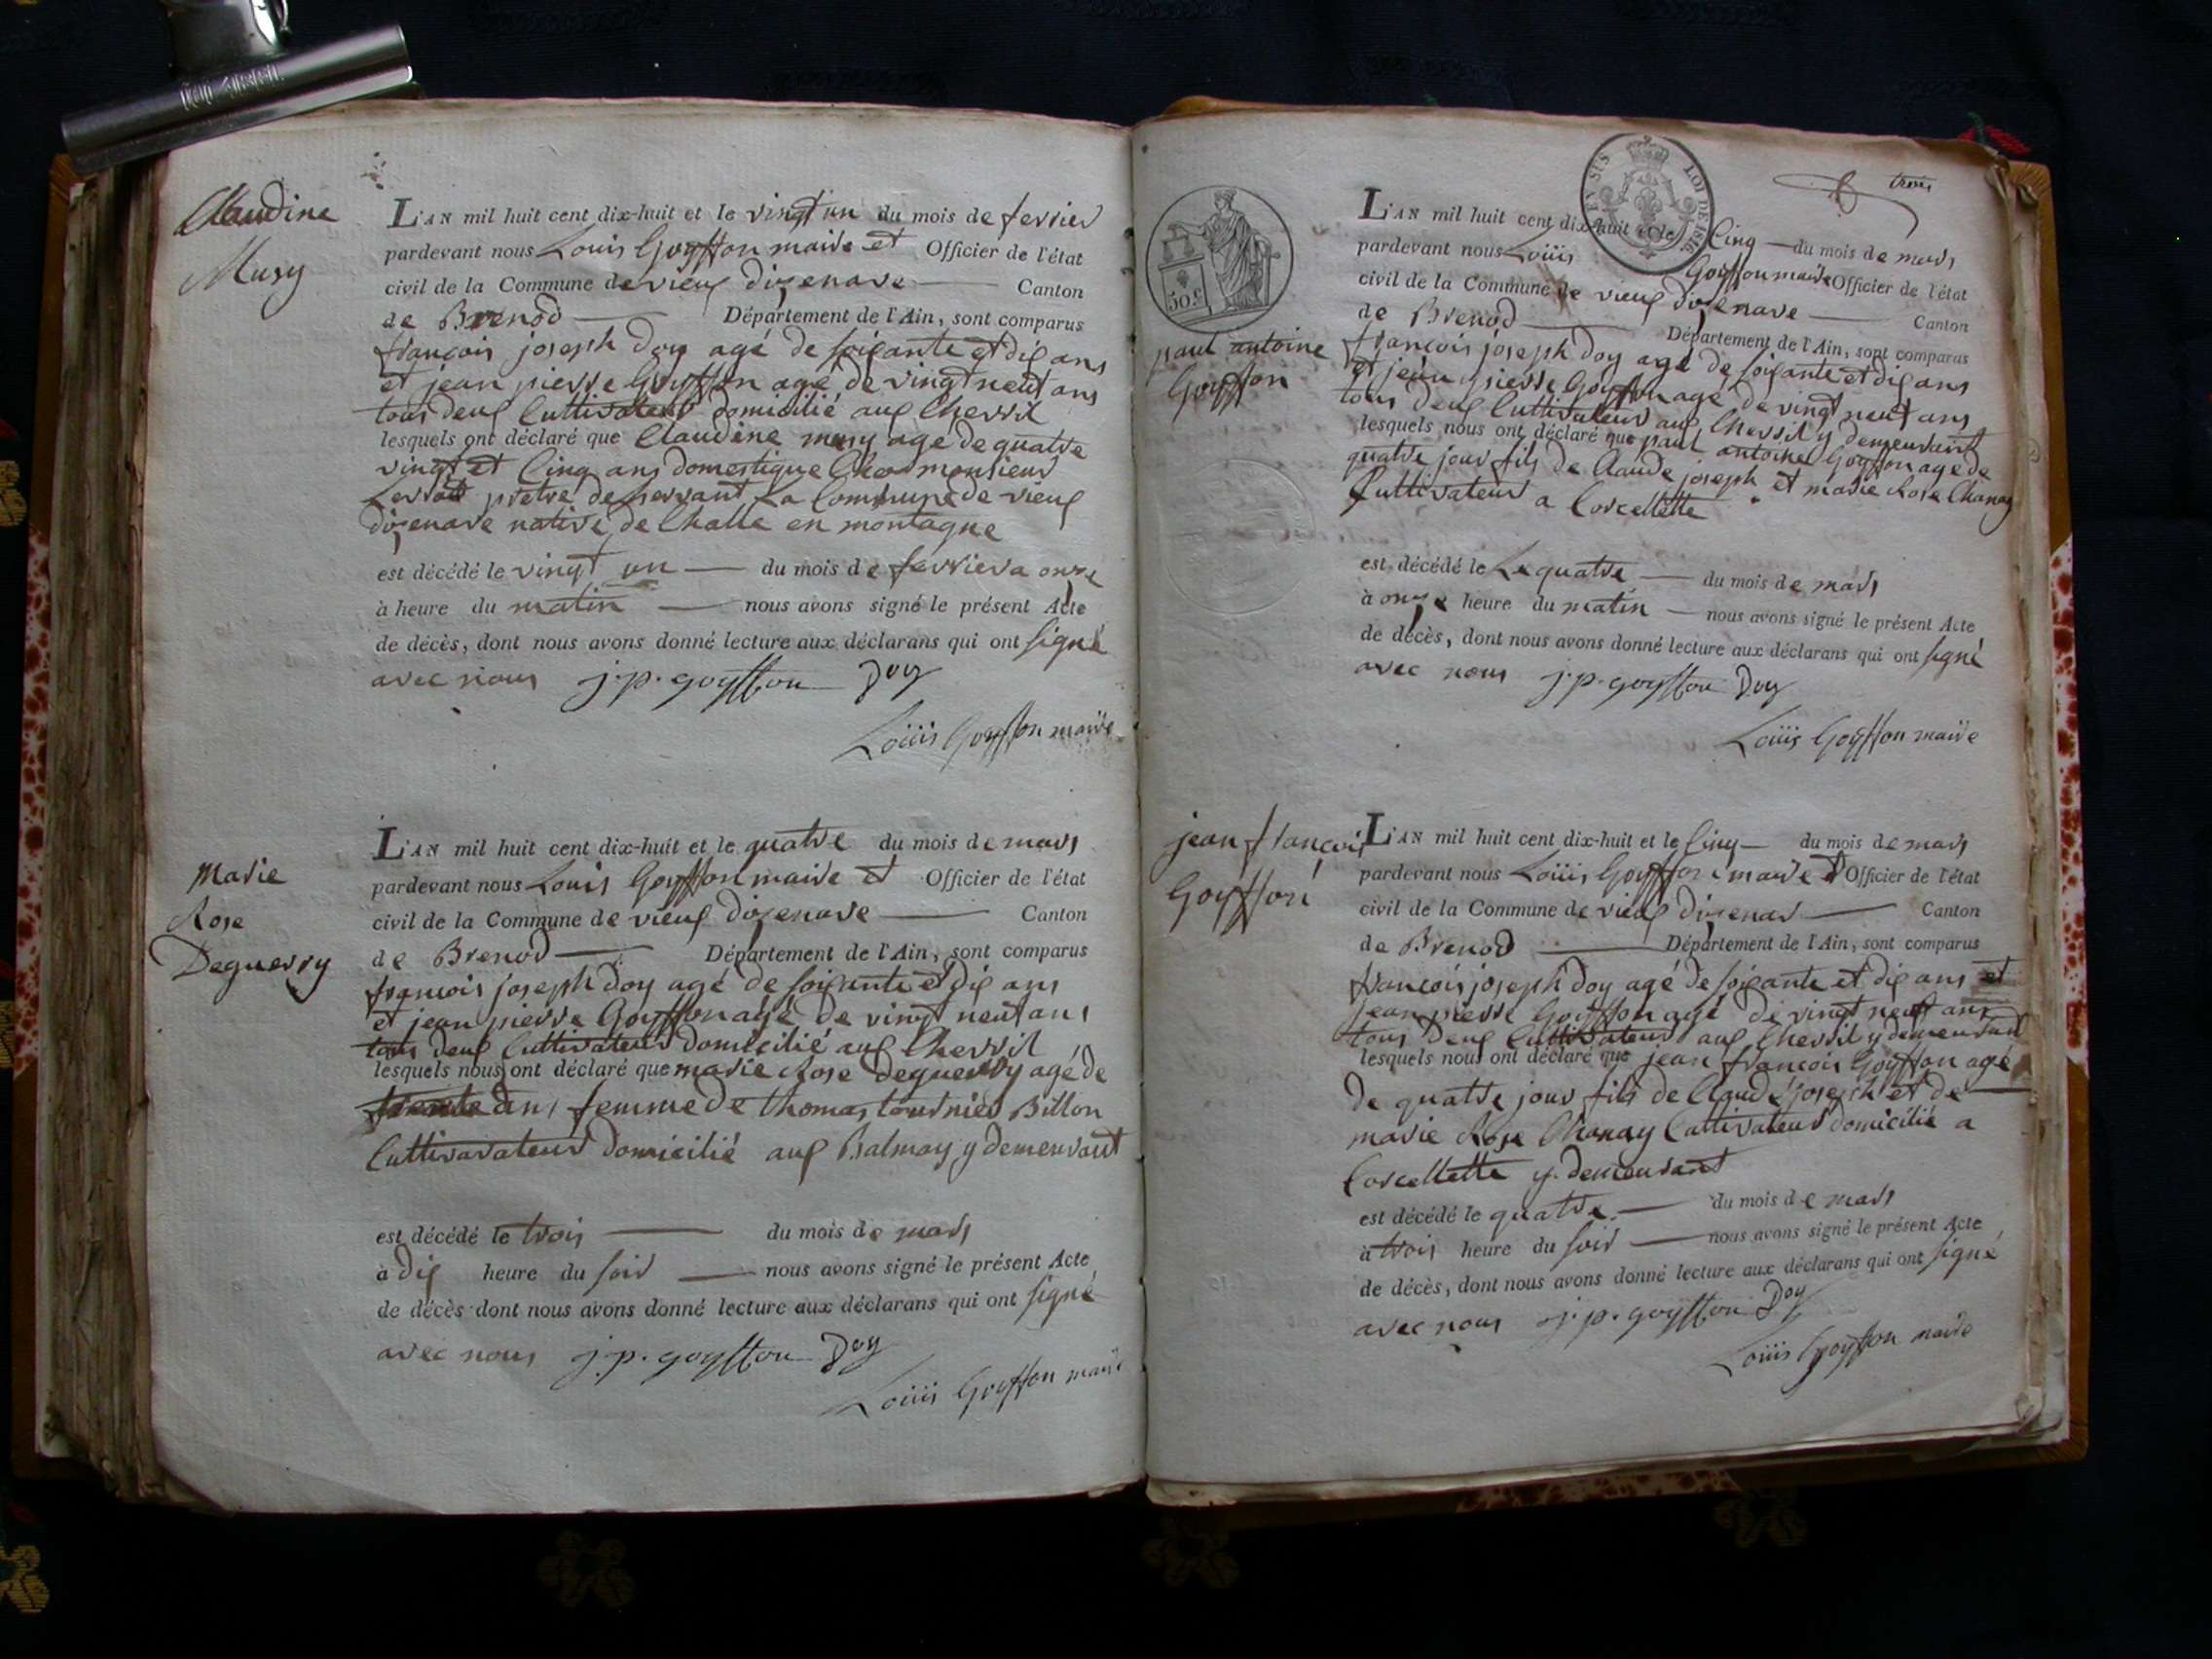 Claudine
Musy
L'AN mil huit cent dix-huit et le vingt un du mois de fevrier
pardevant nous Louis Goyffon maire et Officier de l'état
civil de la Commune de vieux dizenave Canton
de Brenod Département de l'Ain, sont comparus
françois joseph Doy agé de soixante et dix ans
et jean pierre Goyffon age de vingt neuf ans
tous deux Cultivateur domicilié aux Chevril
lesquels ont déclaré que Claudine musy age de quatre
vingt et Cinq ans domestique Chez monsieur
prétre deservant La Commune de vieux
dizenave native de Challe en montagne
est décédé le vingt un du mois de fevrier a onze
à heure du matin nous avons signé le présent Acte
de décès, dont nous avons donné lecture aux déclarans qui ont signé
avec nous j.p. goyffon Doy
Loüis Goyffon maire
Marie
Rose
Deguerry
L'AN mil huit cent dix-huit et le quatre du mois de mars
pardevant nous Louis Goyffon maire et Officier de l'état
civil de la Commune de vieux dizenave Canton
de Brenod Département de l'Ain, sont comparus
françois joseph Doy agé de soixante et dix ans
et jean pierre Goyffon agé de vingt neuf ans
tous deux Cultivateur domicilié aux Chevril
lesquels nous ont déclaré que marie Rose deguerry agé de
trente ans femme de thomas tournier Billon
Cultivavateur domicilié aux Balmay y demeurant
est décédé le trois du mois de mars
à dix heure du soir nous avons signé le présent Acte
de décès dont nous avons donné lecture aux déclarans qui ont signé
avec nous j.p. goyffon Doy
Loüis Goyffon maire
trois
EN SUS LOI DE 1816
50.c
paul antoine
Goyffon
L'AN mil huit cent dix-huit et le Cinq du mois de mars
pardevant nous Loüis Goyffon maire Officier de l'état
civil de la Commune de vieux dizenave Canton
de Brenod Département de l'Ain, sont comparus
françois joseph Doy agé de soixante et dix ans
et jean pierre Goyffon agé de vingt neuf ans
tous deux Cultivateur aux Chevril y demeurant
lesquels nous ont déclaré que paul antoine Goyffon age de
quatre jour fils de Claude joseph et marie Rose Chanay
Cultivateur a Corcellette
est décédé le Le quatre du mois de mars
à onze heure du matin nous avons signé le présent Acte
de décès, dont nous avons donné lecture aux déclarans qui ont signé
avec nous j.p. goyffon Doy
Loüis Goyffon maire
jean françois
Goyffon
L'AN mil huit cent dix-huit et le Cinq du mois de mars
pardevant nous Loüis Goyffon maire et Officier de l'état
civil de la Commune de vieux dizenav Canton
de Brenod Département de l'Ain, sont comparus
françois joseph Doy agé de soixante et dix ans et
jean pierre Goyffon agé de vingt neuf ans
tous deux Cultivateur aux Chevril y demeurand
lesquels nous ont déclaré que jean françois Goyffon agé
de quatre jour fils de Claude joseph et de
marie Rose Chanay Cultivateur domicilié a
Corcellette y demeurant
est décédé le quatre du mois de mars
à trois heure du soir nous avons signé le présent Acte
de décès, dont nous avons donné lecture aux déclarans qui ont signé
avec nous j.p. goyffon Doy
Loüis Goyffon maire